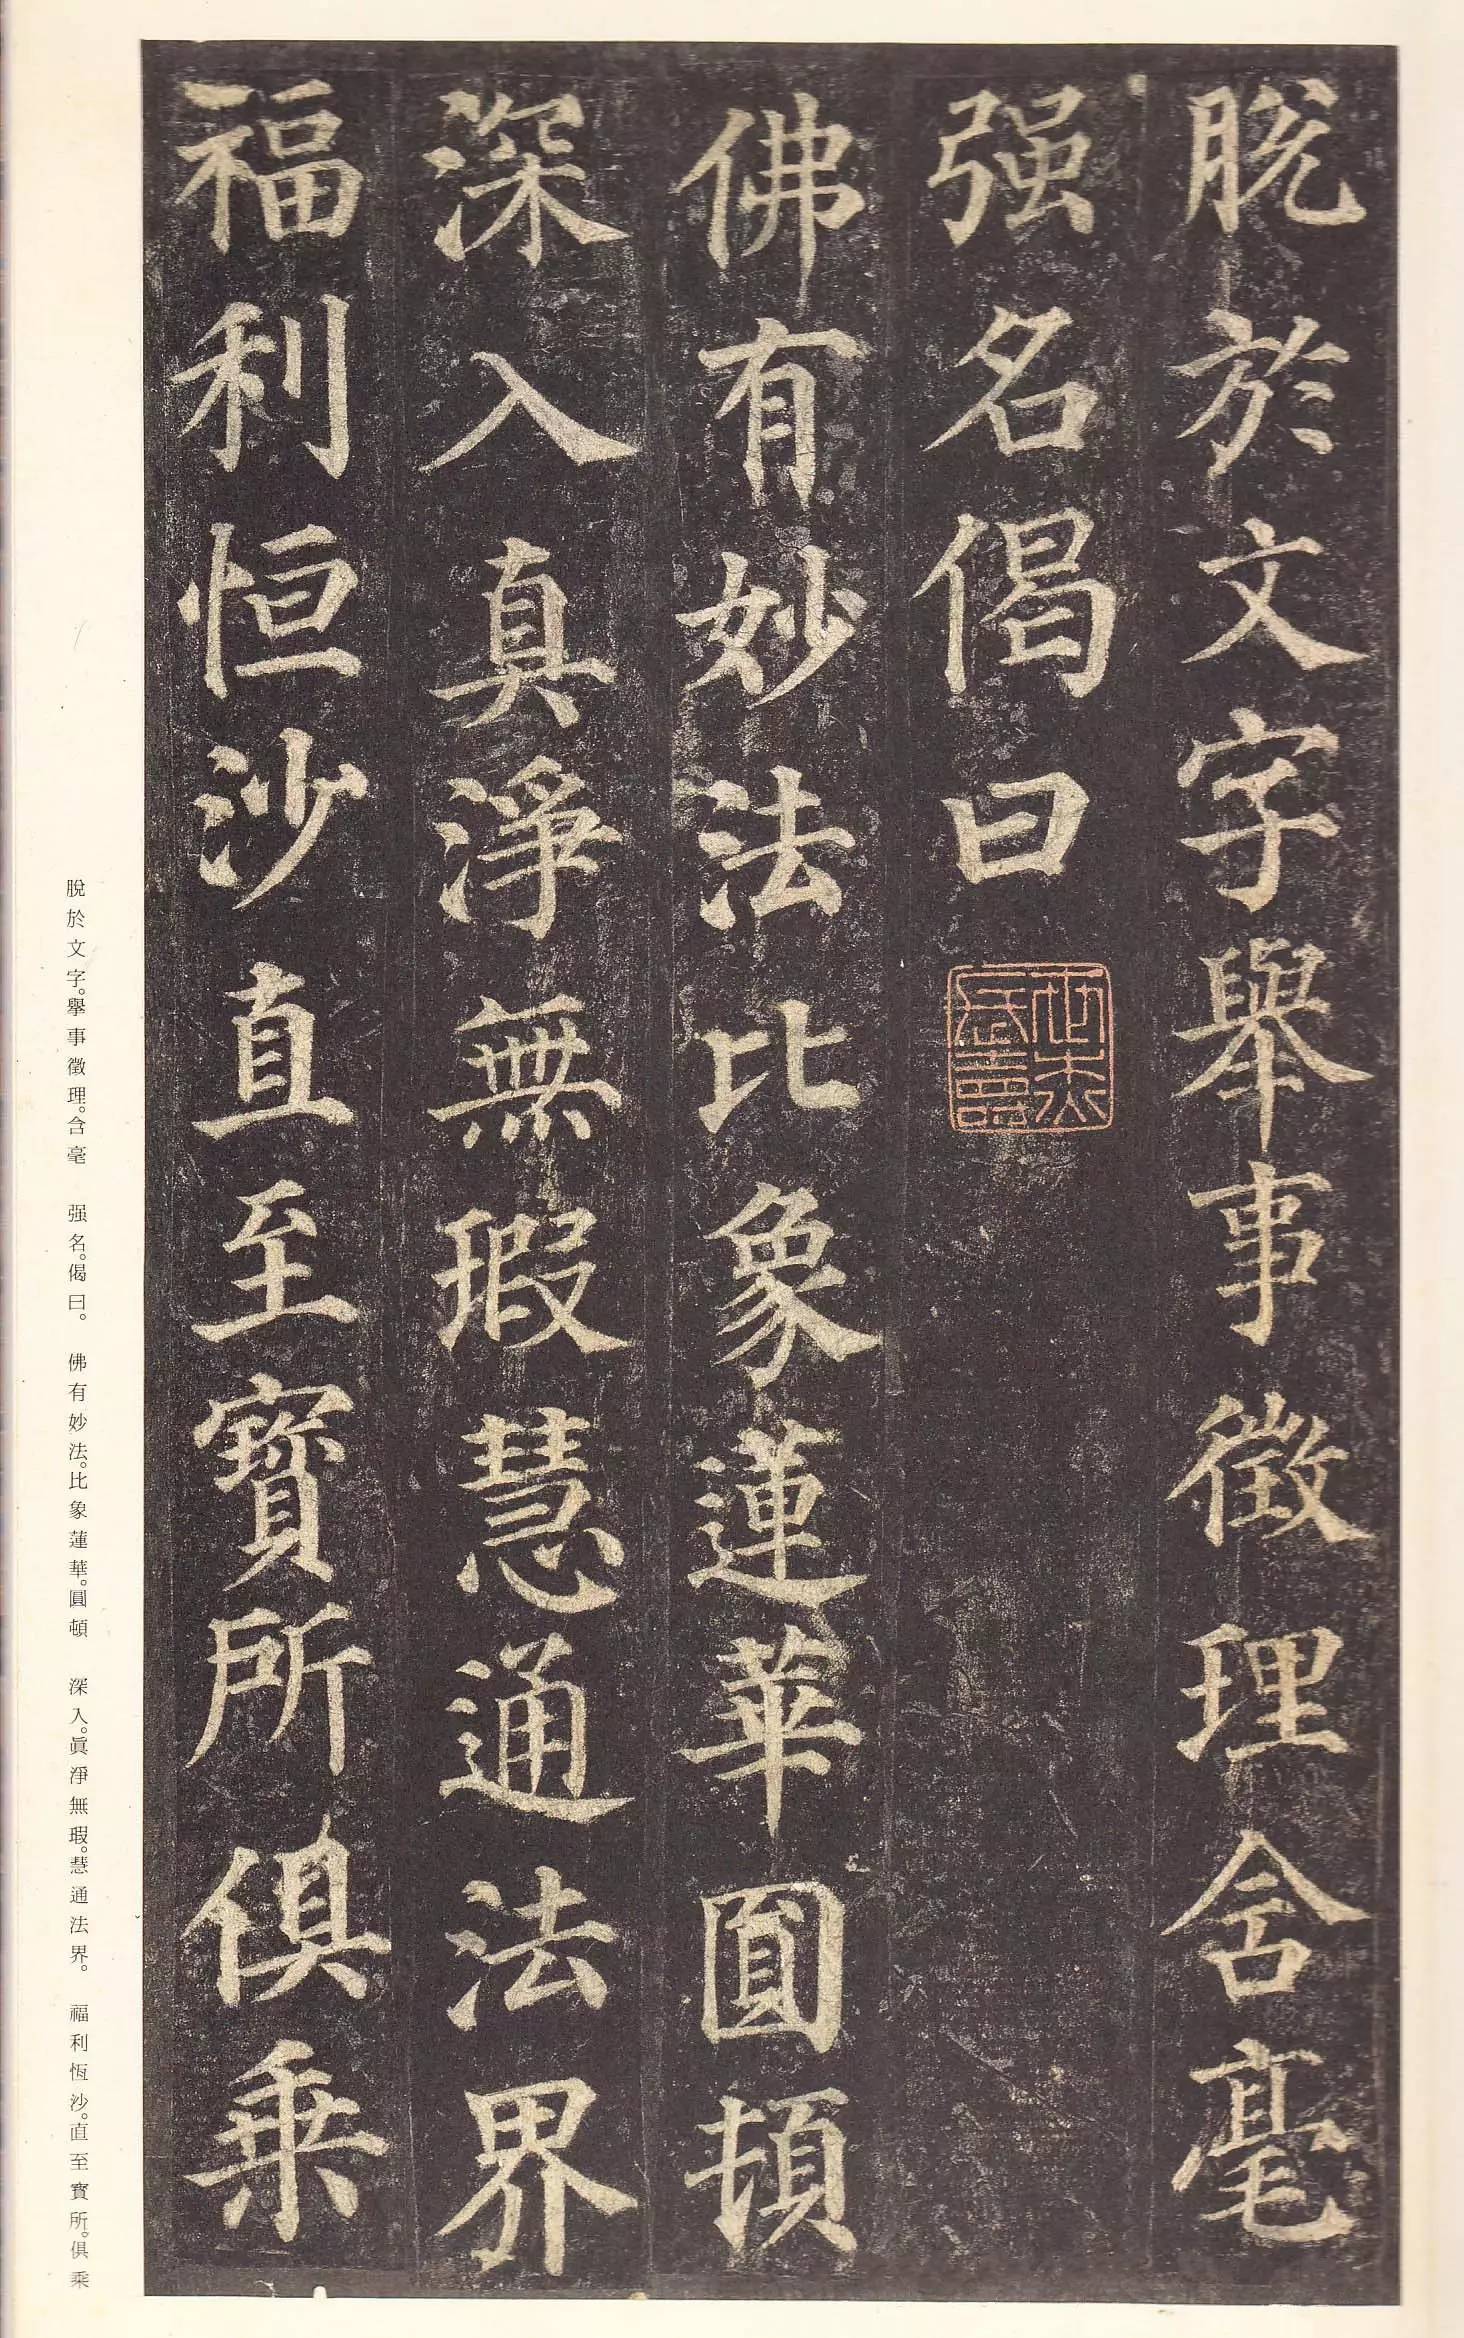 脫於文字舉事徵理含毫
强名偈曰
佛有妙法比象蓮華圓頓
深入真淨無瑕慧通法界
福利恒沙直至寶所俱乘
脫於文字。舉事徵理。含毫　强名。偈曰。　佛有妙法。比象蓮華。圓頓　深入。眞淨無瑕。慧通法界。　福利恆沙。直至寶所。俱乘